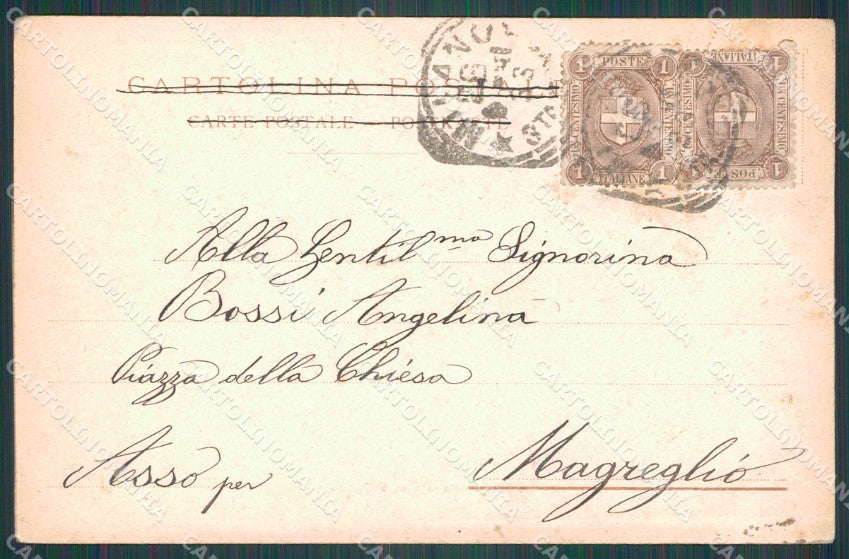 CARTOLINA POSTALE
CARTE POSTALE
MILANO
POSTE
1 1
UN CENTESIMO
ITALIANE
1 1
POSTE
1 1
UN CENTESIMO
ITALIANE
1 1
Alla Gentil.ma Signorina
Bossi Angelina
Piazza della Chiesa
Asso per Magreglio
CARTOLINOMANIA